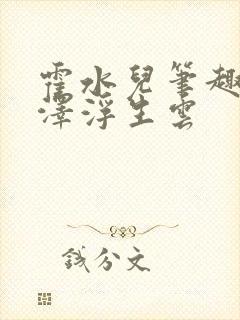 霍水兒筆趣
澤浮生雲
錢分文